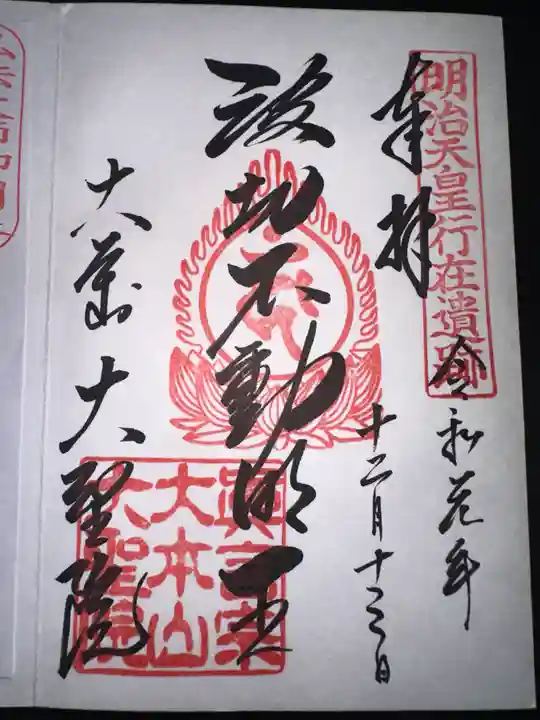 明治天皇行在遺跡
奉拝
令和元年
十二月十三日
波切不動明王
眞言宗
大本山
大聖院
大本山
大聖院